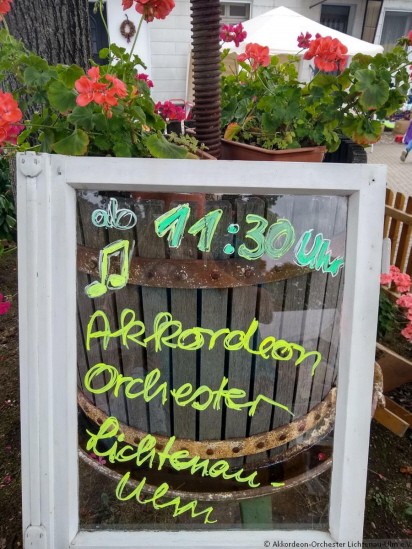 ab 11:30 Uhr
Akkordeon
Orchester
Lichtenau-
Ulm
© Akkordeon-Orchester Lichtenau-Ulm e.V.